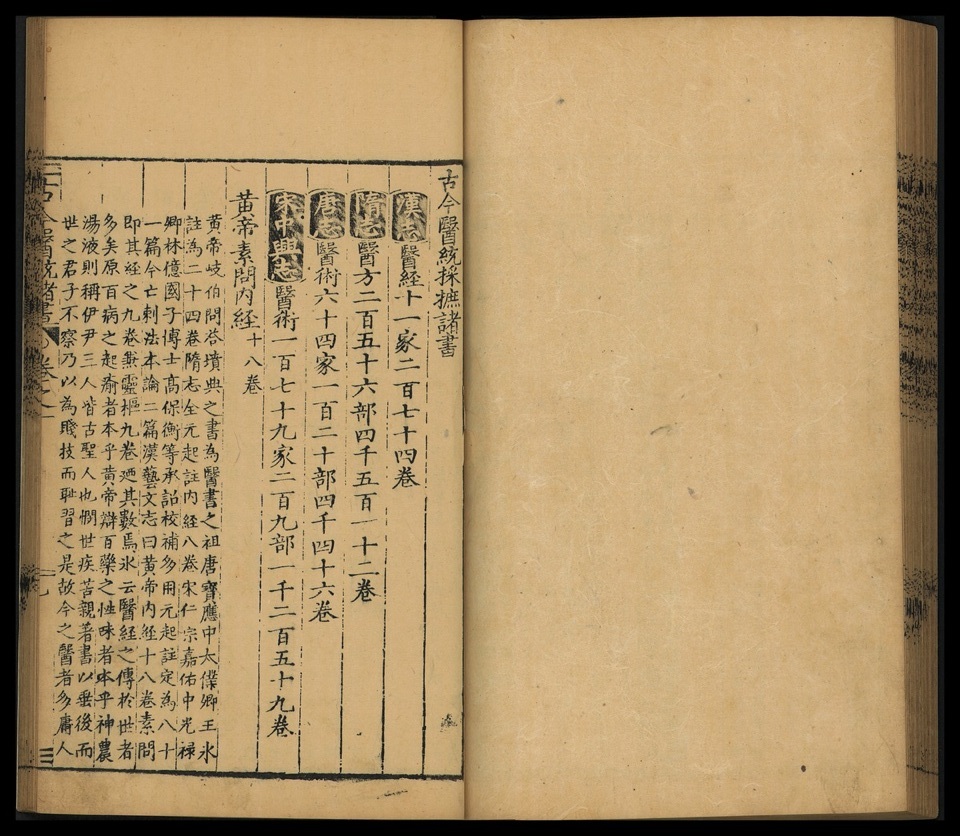 古今醫統採摭諸書
漢志醫經十一家二百七十四卷
隋志醫方二百五十六部四千五百一十二卷
唐志醫術六十四家一百二十部四千四十六卷
宋中興志醫術一百七十九家二百九部一千二百五十九卷
黃帝素問內經十八卷
黃帝岐伯問答墳典之書為醫書之祖唐寶應中太僕卿王氷
註為二十四卷隋志全元起註內經八卷宋仁宗嘉佑中光祿
卿林億國子博士高保衡等承詔校補多用元起註定為八十
一篇今亡刺法本論二篇漢藝文志曰黃帝內經十八卷素問
即其經之九卷兼靈樞九卷廼其數焉氷云醫經之傳於世者
多矣原百病之起瘉者本乎黃帝辯百藥之性味者本乎神農
湯液則稱伊尹三人皆古聖人也憫世疾苦親著書以垂後而
世之君子不察乃以為賤技而恥習之是故今之醫者多庸人
古今醫統諸書 卷之一